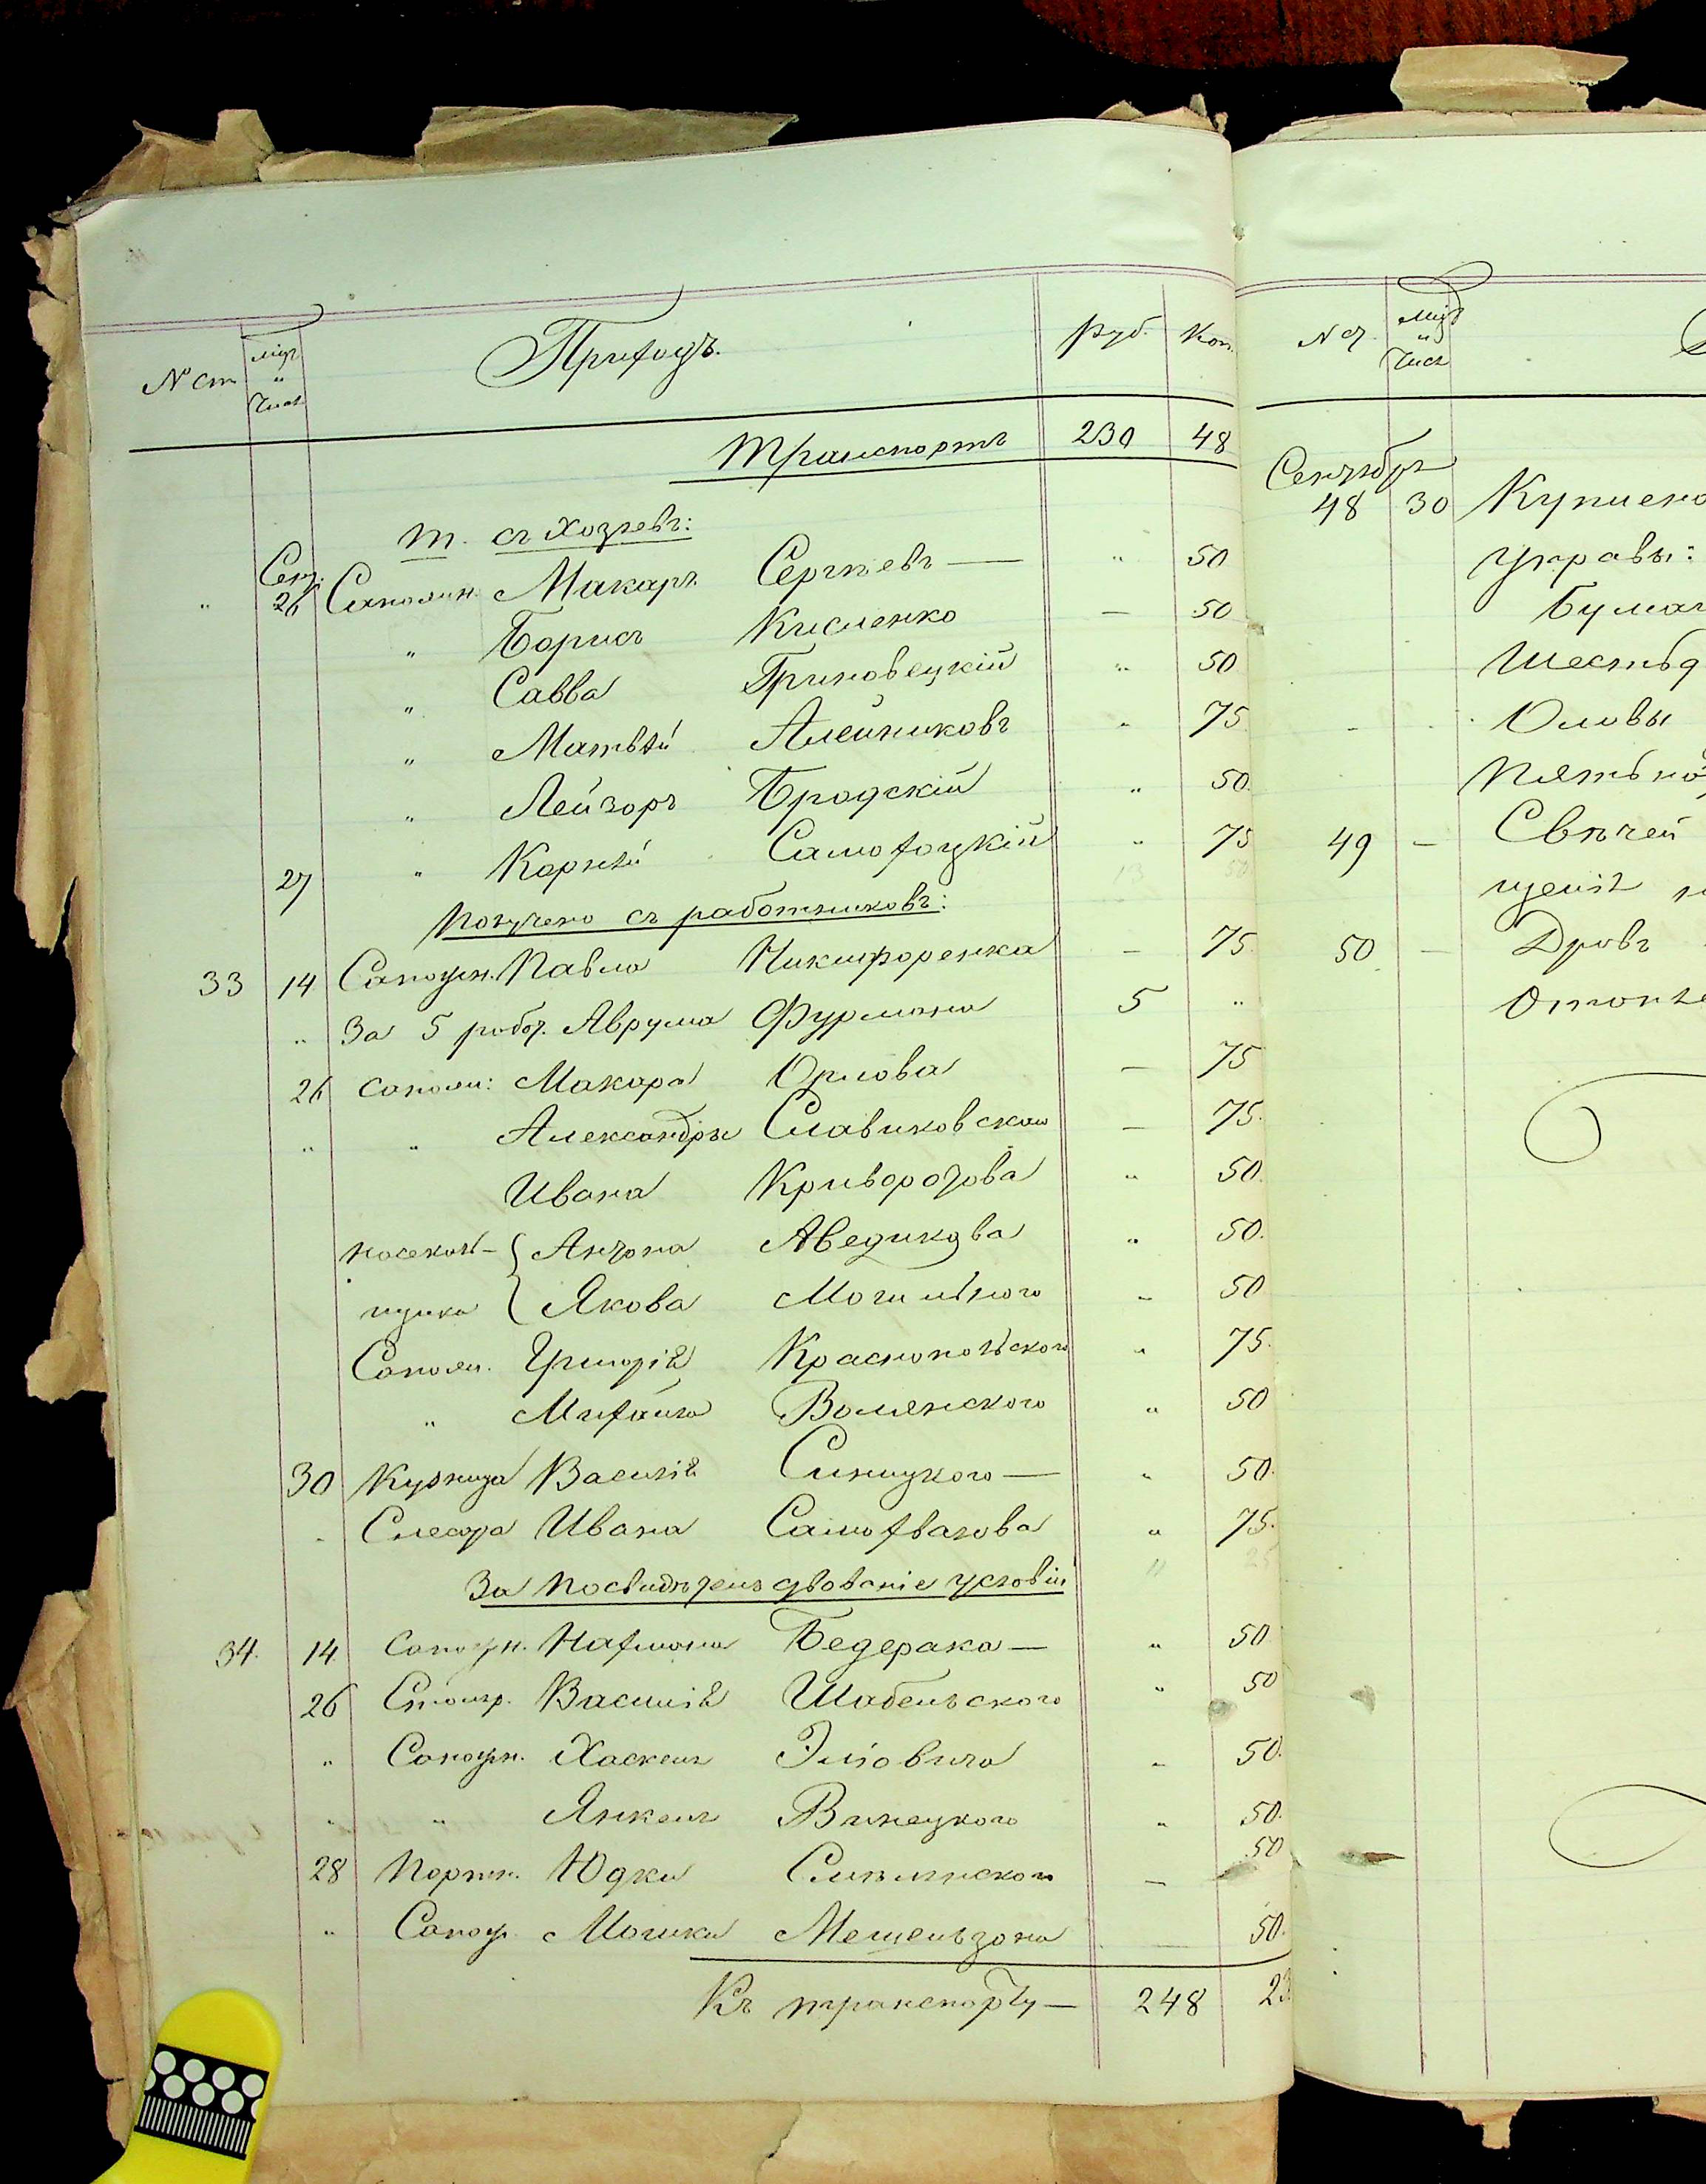 № ст. Мѣс. и Числ. Приходъ. Руб. Коп.
Транспортъ 230 48
т. съ Хозяевъ:
Сент.
" 26 Сапожн. Макаръ Сергѣевъ — " 50
" Борисъ Кисленко — 50
" Савва Гриновецкій " 50
" Матвѣй Алейниковъ " 75
" Лейзоръ Бродскій " 50.
27 " Корнѣй Самофоцкій " 75
13 50
Получено съ работниковъ:
33 14 Сапожн. Павла Никифоренка — 75.
" За 5 робот. Аврума Фурмана 5 "
26 сапожн: Макара Орлова — 75
" " Александры Славиковской — 75.
Ивана Криворотова " 50.
Антона Аведикова " 50.
щика Якова Могильного " 50
Сапожн. Григорія Краснопольского " 75.
" Михайла Волянского " 50
30 Кузнеца Василія Синицкого — " 50.
" Слесаря Ивана Самохвалова " 75.
" 25
За посвидѣтельствованіе условій
34. 14 Сапожн. Нахмана Бедерака — " 50
26 Столяр. Василія Шабельского " 50
" Сапожн. Хаскеля Эліовича " 50.
" " Янкеля Винецкого " 50.
28 Портн. Юдки Слѣпинского — 50
" Сапож. Мошки Мешельзона — 50.
Къ транспорту — 248 23
№ ст. Мѣс. и Числ.
Сентябрь
48 30 Куплено
управы:
Бумаг
Шестьд
Оловы
Пятьно
49 — Свѣчей
щенія
50 — Дровъ
Отопле